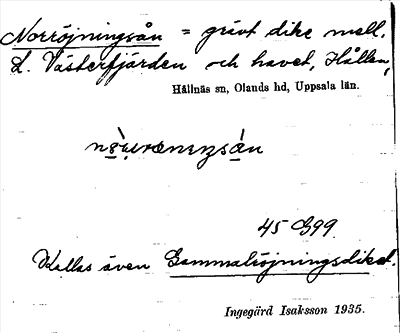 Norröjningsån = grävt dike mell.
L. Västerfjärden och havet, Hållen,
Hållnäs sn, Olands hd, Uppsala län.
45 G99.
Kallas även Gammalröjningsdiket.
Ingegärd Isaksson 1935.